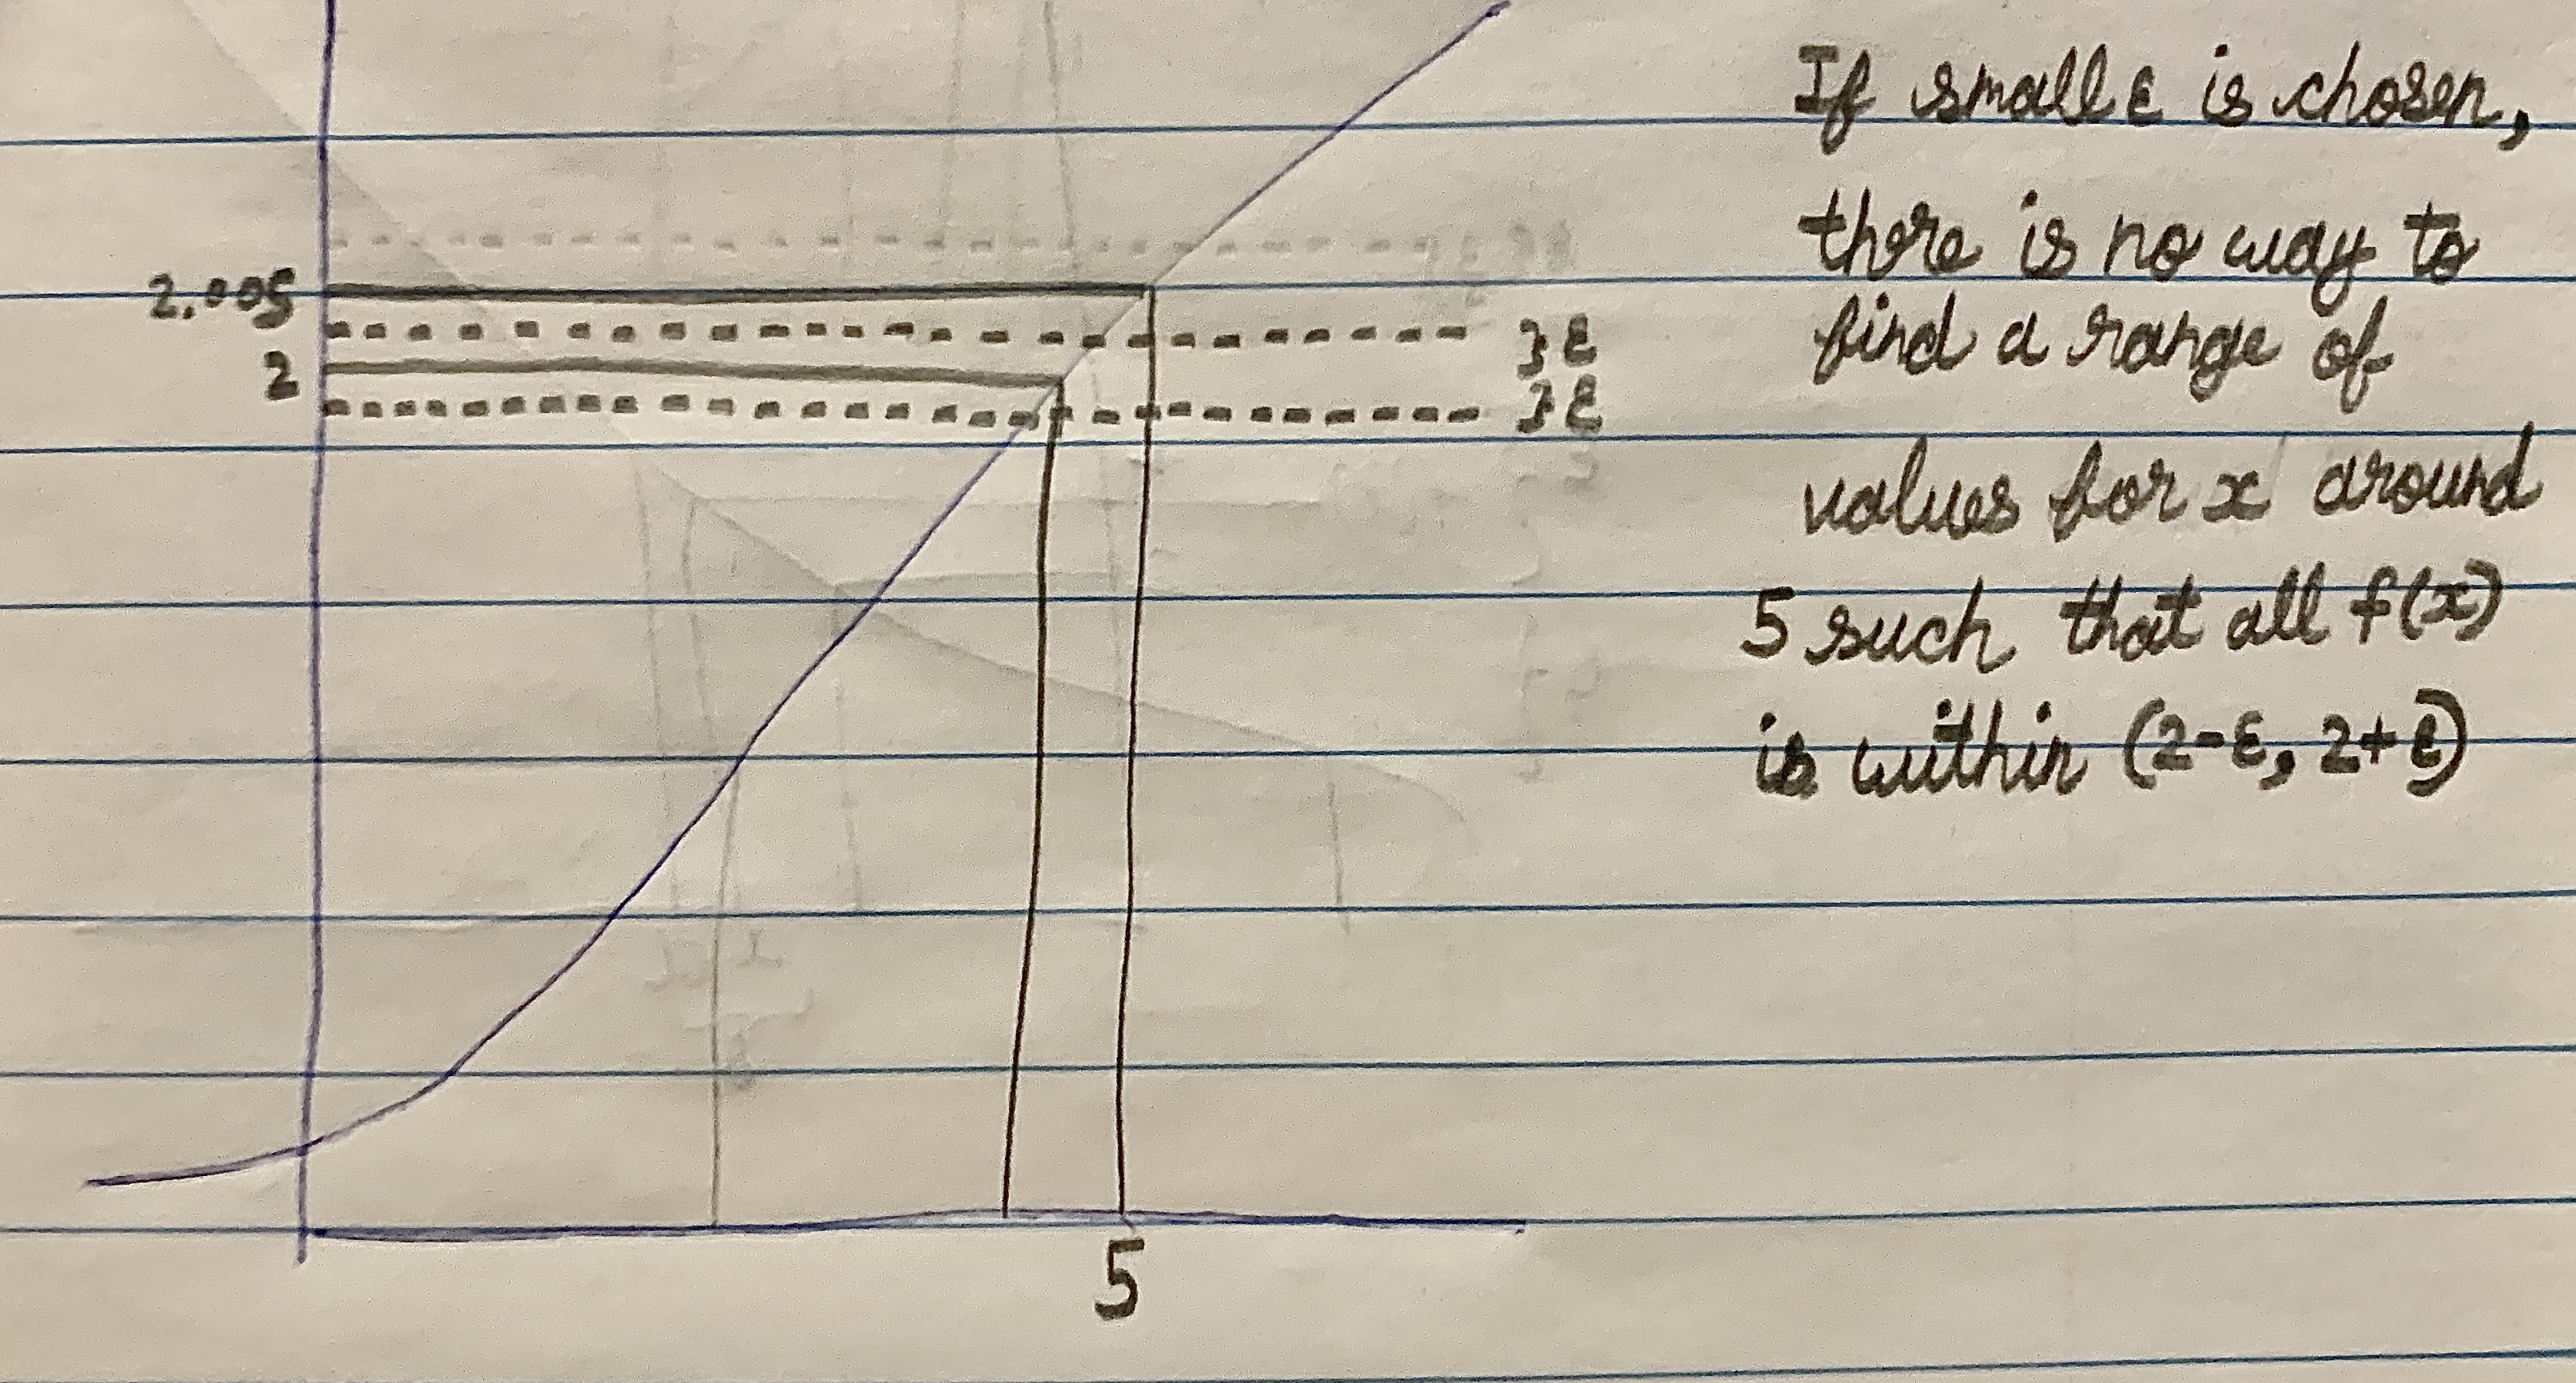 If small ε is chosen,
there is no way to
2.005
find a range of
}ε
2
}ε
values for x around
5 such that all f(x)
is within (2-ε, 2+ε)
5